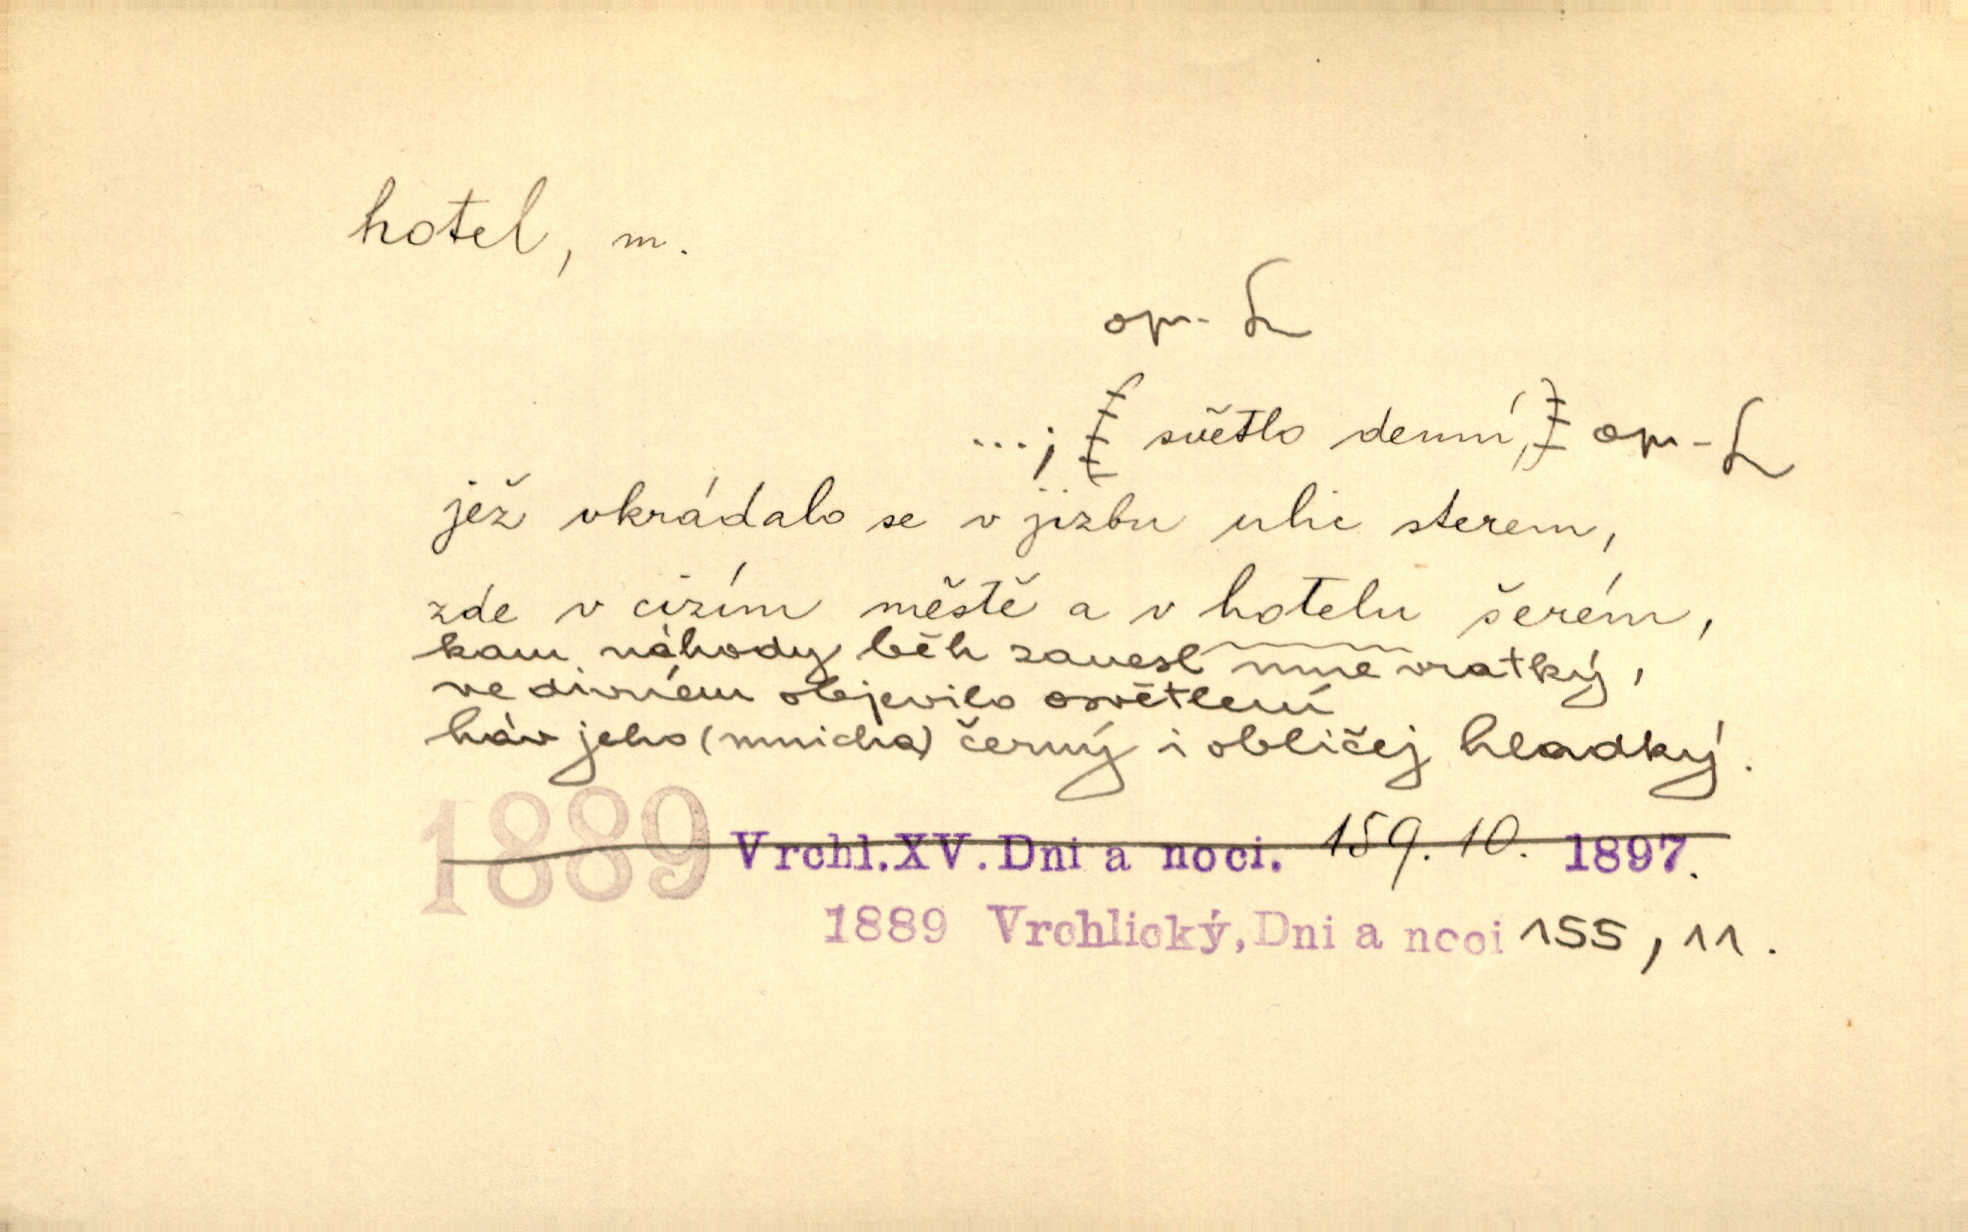 hotel, m.
op-
...; světlo denní, op-
jež vkrádalo se v jizbu ulic sterem,
zde v cizím městě a v hotelu šerém,
kam náhody běh zanesl mne vratký,
ve divném objevilo osvětlení
háv jeho (mnicha) černý i obličej hladký.
1889 Vrchl.XV.Dni a noci. 159. 10. 1897.
1889 Vrchlický, Dni a noci 155, 11.